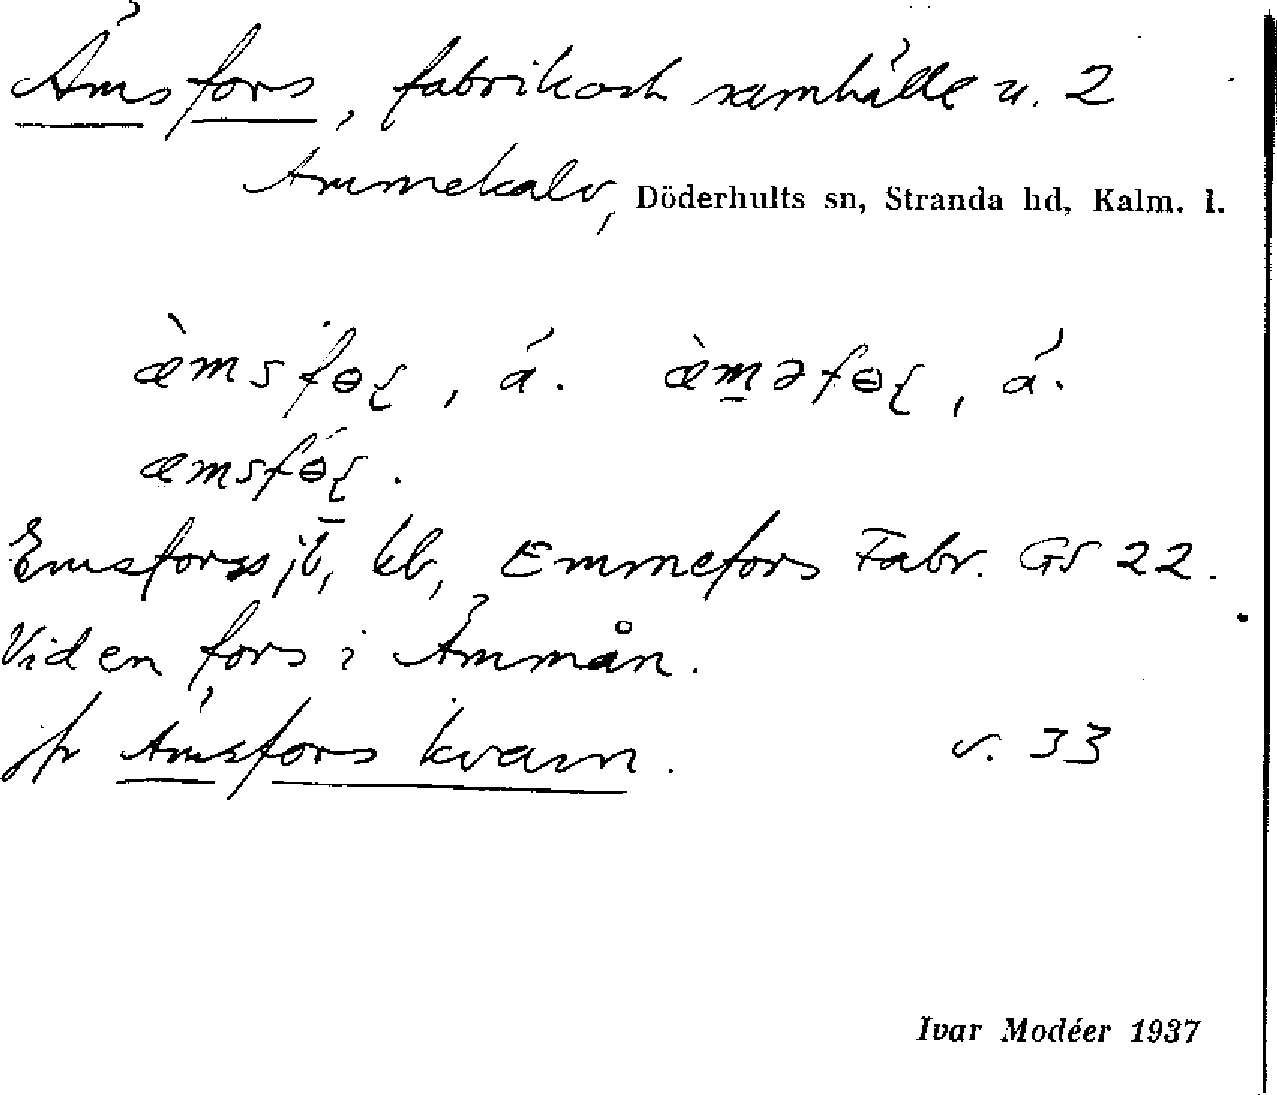 Ämsfors, fabrik och samhälle u. 2
Ämmekalv, Döderhults sn, Stranda hd, Kalm. l.
æ̀msfɵʂ, á. æ̀m̲əfɵʂ, á.
æmsfɵ́ʂ.
Emsforss jb, kb, Emmefors Fabr. GS 22.
Vid en fors i Ämmån.
jfr Ämsfors kvarn. s. 33
Ivar Modéer 1937